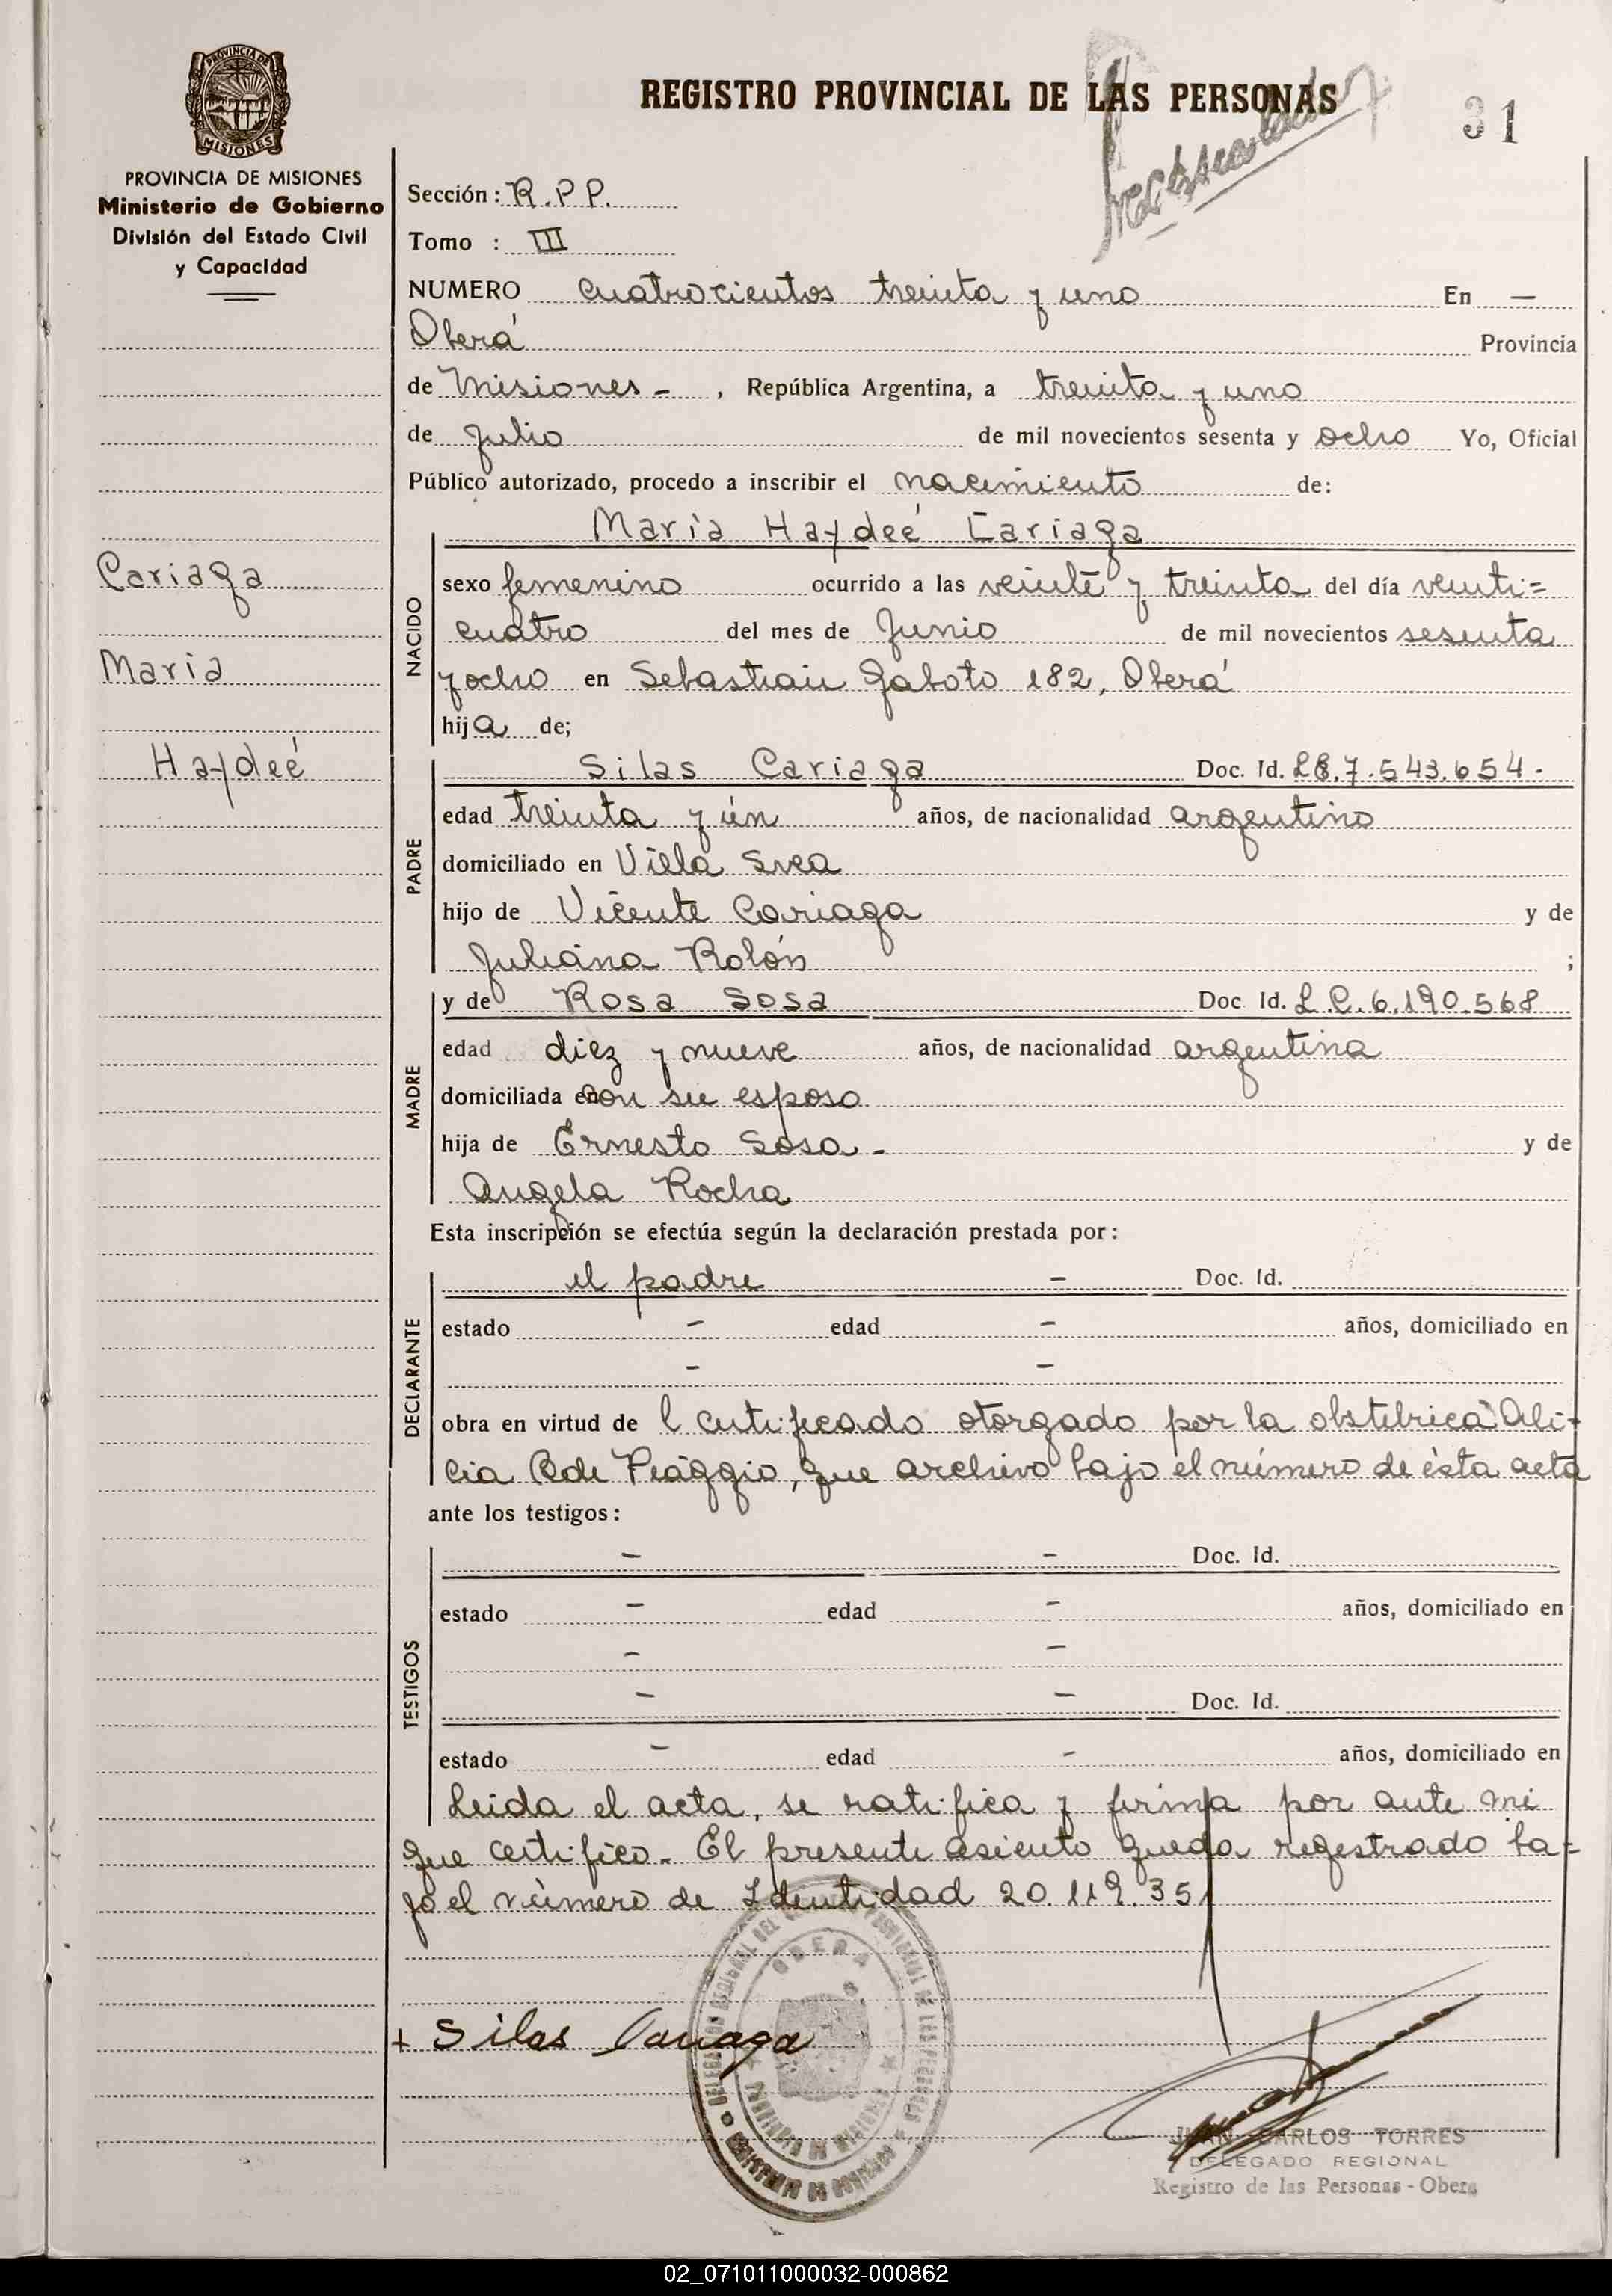 REGISTRO PROVINCIAL DE LAS PERSONAS
31
PROVINCIA DE MISIONES
Ministerio de Gobierno
División del Estado Civil
y Capacidad
Sección: R.P.P.
Tomo : III
NUMERO cuatrocientos treinta y uno En —
Oberá Provincia
de Misiones - , República Argentina, a treinta y uno
de Julio de mil novecientos sesenta y ocho Yo, Oficial
Público autorizado, procedo a inscribir el nacimiento de:
María Haydeé Cariaga
Cariaga
María
Haydeé
NACIDO
sexo femenino ocurrido a las veinte y treinta del día veinti=
cuatro del mes de Junio de mil novecientos sesenta
y ocho en Sebastian Gaboto 182, Oberá
hija de;
PADRE
Silas Cariaga Doc. Id. LE.7.543.654-
edad treinta y ún años, de nacionalidad argentino
domiciliado en Villa Svea
hijo de Vicente Cariaga y de
Juliana Rolón ;
MADRE
y de Rosa Sosa Doc. Id. L.C.6.190.568
edad diez y nueve años, de nacionalidad argentina
domiciliada en con su esposo
hija de Ernesto Sosa - y de
Angela Rocha
Esta inscripción se efectúa según la declaración prestada por:
DECLARANTE
el padre - Doc. Id.
estado - edad - años, domiciliado en
- -
obra en virtud de l certificado otorgado por la obstétrica Ali-
cia de Piaggio, que archivo bajo el número de ésta acta
ante los testigos:
TESTIGOS
- - Doc. Id.
estado - edad - años, domiciliado en
- -
- - Doc. Id.
estado - edad - años, domiciliado en
Leída el acta, se ratifica y firma por ante mi
que certifico. El presente asiento queda registrado ba=
jo el número de Identidad 20.119.351
+ Silas Cariaga
OBERA
PROVINCIA DE MISIONES
MINISTERIO DE GOBIERNO
JUAN CARLOS TORRES
DELEGADO REGIONAL
Registro de las Personas - Obera
02_071011000032-000862